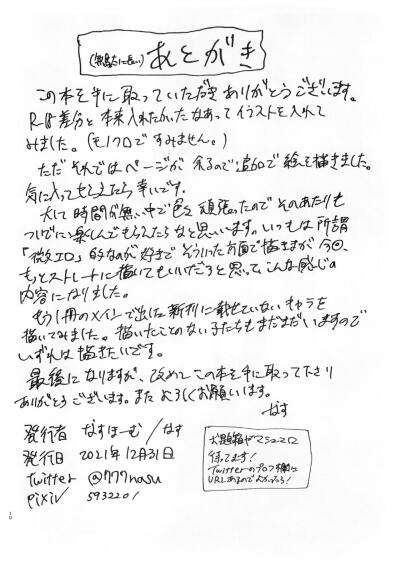 (無駄に長い) あとがき
この本を手に取っていただきありがとうございます。
R-18差分と本来入れたかったなあってイラストを入れて
みました。(モノクロですみません。)
ただそれではページが余るので追加で絵を描きました。
気に入ってもらえたら幸いです。
大して時間が無い中で色々頑張ったのでそのあたりも
ついでに楽しんでもらえたらなと思います。いつもは所謂
「微エロ」的なのが好きでそういった方面で描きますが今回、
もっとストレートに描いてもいいだろと思ってこんな感じの
内容になりました。
もう1冊のメインで出した新刊に載せていないキャラを
描いてみました。描いたことのない子たちもまだまだいますので
いずれは描きたいです。
最後になりますが、改めてこの本を手に取って下さり
ありがとうございます。またよろしくお願います。
なす
発行者 なすほーむ/なす
発行日 2021年12月31日
twitter @777nasu
pixiv 5932201
お題箱やマシュマロ
待ってます!
Twitterのプロフ欄に
URLあるのでよかったら!
10